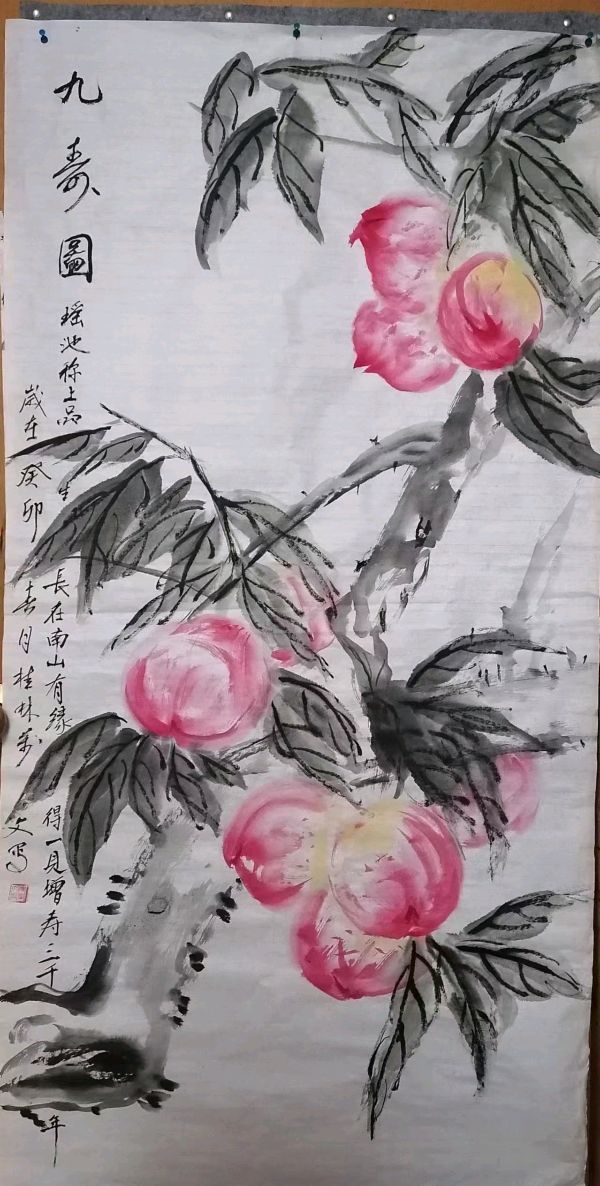 九寿圖
瑶池称上品生長在南山有緣得一見增寿三千年
歲在癸卯春月桂林
文写